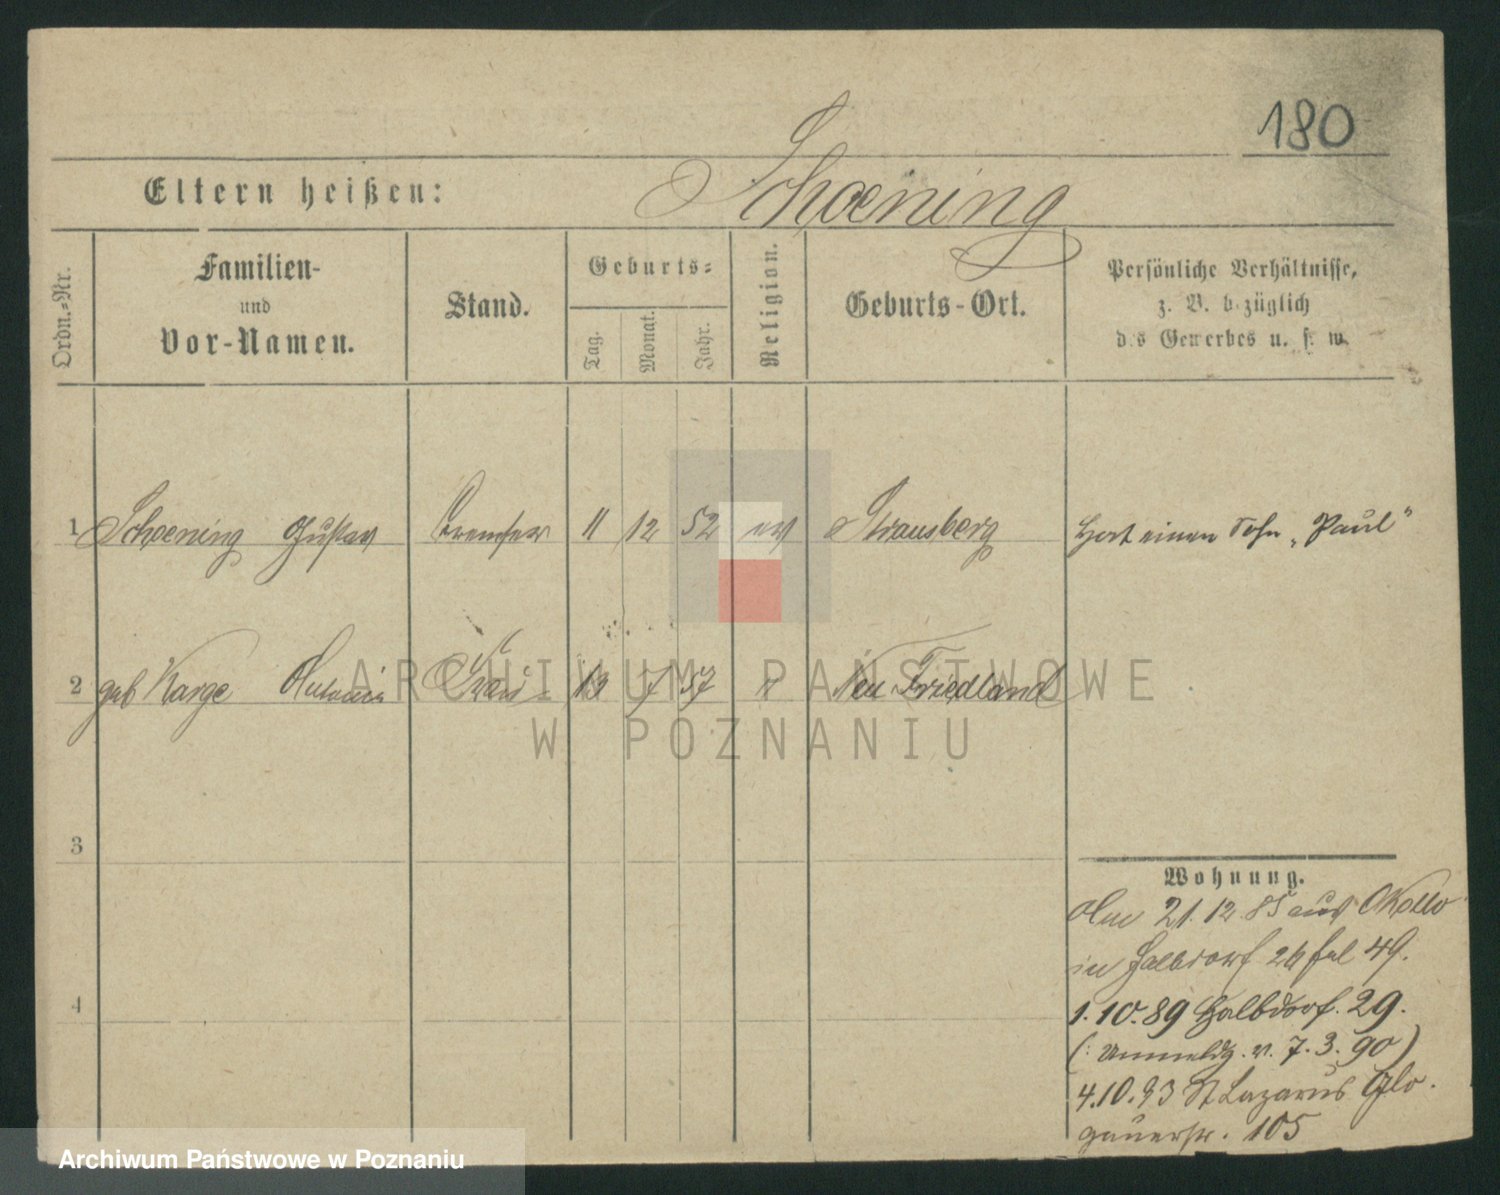 180
Eltern heißen: Schoening
Ordn.-Nr.
Familien-
und
Vor-Namen.
Stand.
Geburts-
Tag.
Monat.
Jahr.
Religion.
Geburts-Ort.
Persönliche Verhältnisse,
z. B. bezüglich
des Gewerbes u. s. w.
1 Schoening Gustav Bremser 11 12 52 ev Strausberg Hat einen Sohn „Paul"
2 geb Karge Frau 13 7 57 " Neu Friedland
3
4
Wohnung.
21.12 85 aus
in Halbdorf 26 49.
1.10.89 Halbdorf. 29.
(: Anmeldg. v. 7.3.90)
4.10.93 St Lazarus Glo-
gauerstr. 105
ARCHIWUM PAŃSTWOWE
W POZNANIU
Archiwum Państwowe w Poznaniu